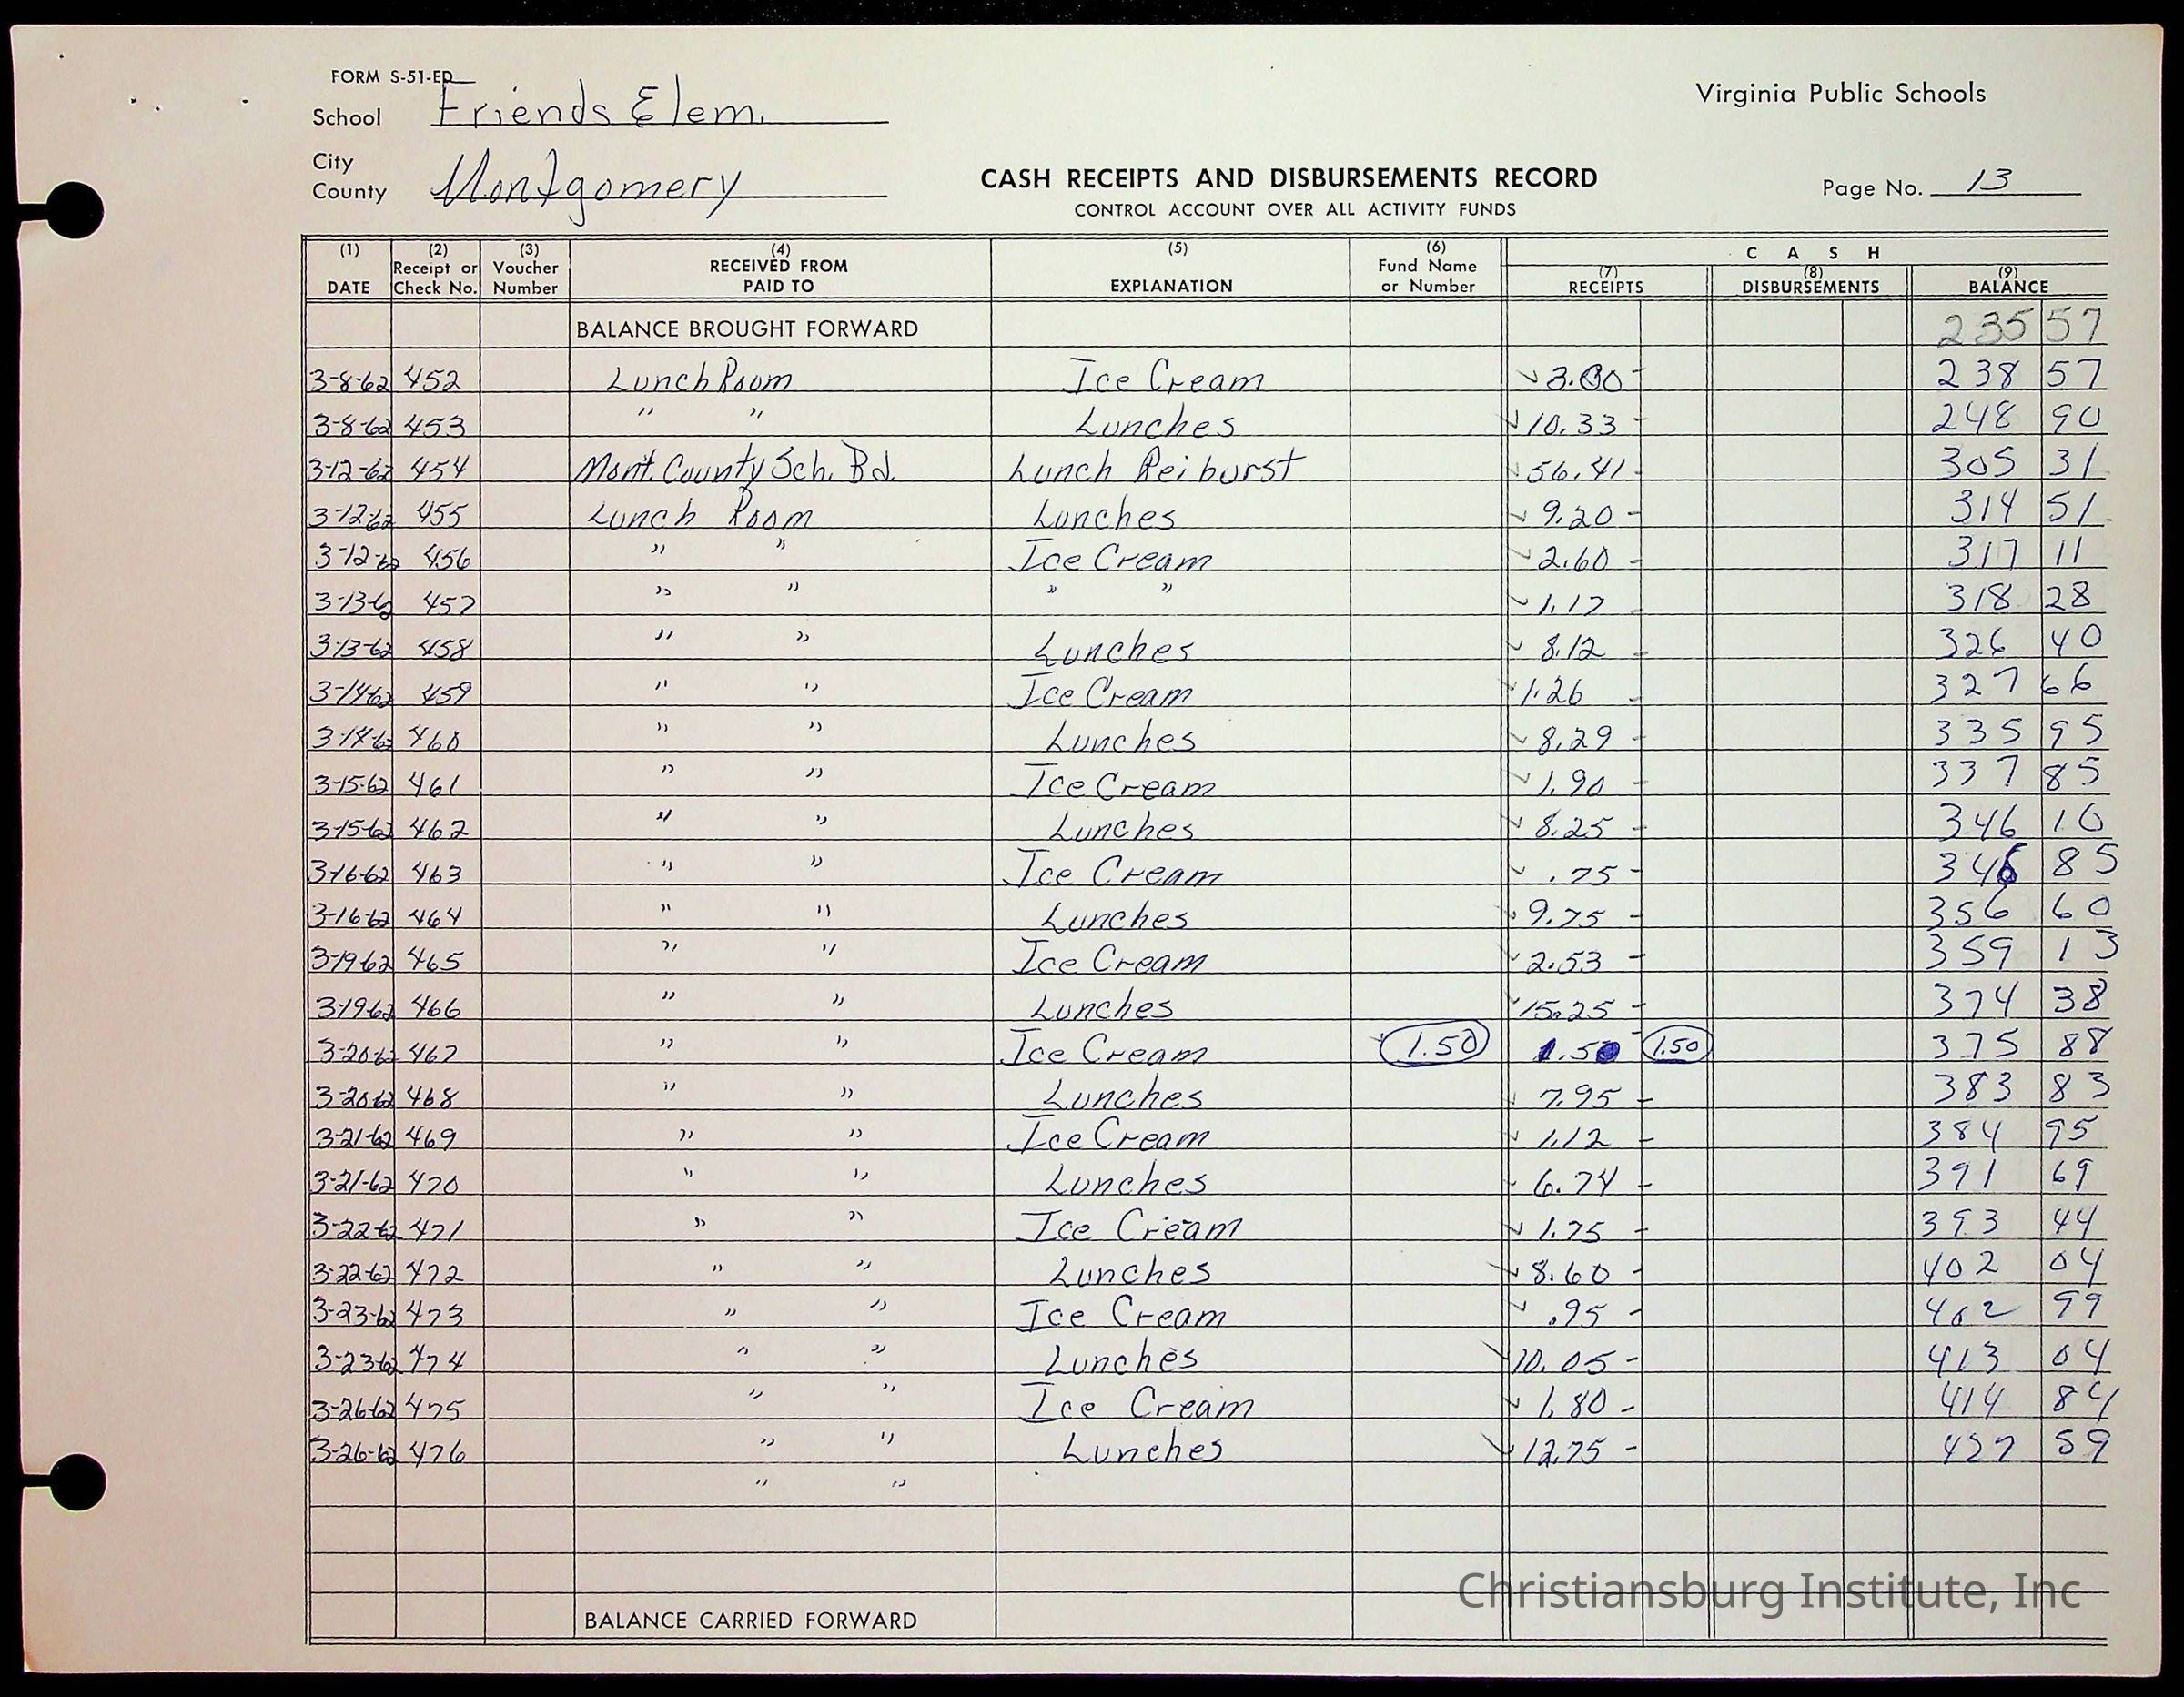 FORM S-51-ED
School Friends Elem.
Virginia Public Schools
City
County Montgomery
CASH RECEIPTS AND DISBURSEMENTS RECORD
CONTROL ACCOUNT OVER ALL ACTIVITY FUNDS
Page No. 13
(1) DATE (2) Receipt or Check No. (3) Voucher Number (4) RECEIVED FROM PAID TO (5) EXPLANATION (6) Fund Name or Number CASH (7) RECEIPTS (8) DISBURSEMENTS (9) BALANCE
BALANCE BROUGHT FORWARD 235 57
3-8-62 452 Lunch Room Ice Cream 3.00 - 238 57
3-8-62 453 " " Lunches 10.33 - 248 90
3-12-62 454 Mont. County Sch. Bd. Lunch Reiburst 56.41 - 305 31
3-12-62 455 Lunch Room Lunches 9.20 - 314 51
3-12-62 456 " " Ice Cream 2.60 - 317 11
3-13-62 457 " " " " 1.17 - 318 28
3-13-62 458 " " Lunches 8.12 - 326 40
3-14-62 459 " " Ice Cream 1.26 - 327 66
3-14-62 460 " " Lunches 8.29 - 335 95
3-15-62 461 " " Ice Cream 1.90 - 337 85
3-15-62 462 " " Lunches 8.25 - 346 10
3-16-62 463 " " Ice Cream .75 - 346 85
3-16-62 464 " " Lunches 9.75 - 356 60
3-19-62 465 " " Ice Cream 2.53 - 359 13
3-19-62 466 " " Lunches 15.25 - 374 38
3-20-62 467 " " Ice Cream 1.50 1.50 1.50 375 88
3-20-62 468 " " Lunches 7.95 - 383 83
3-21-62 469 " " Ice Cream 1.12 - 384 95
3-21-62 470 " " Lunches 6.74 - 391 69
3-22-62 471 " " Ice Cream 1.75 - 393 44
3-22-62 472 " " Lunches 8.60 - 402 04
3-23-62 473 " " Ice Cream .95 - 402 99
3-23-62 474 " " Lunches 10.05 - 413 04
3-26-62 475 " " Ice Cream 1.80 - 414 84
3-26-62 476 " " Lunches 12.75 - 427 59
" "
Christiansburg Institute, Inc
BALANCE CARRIED FORWARD